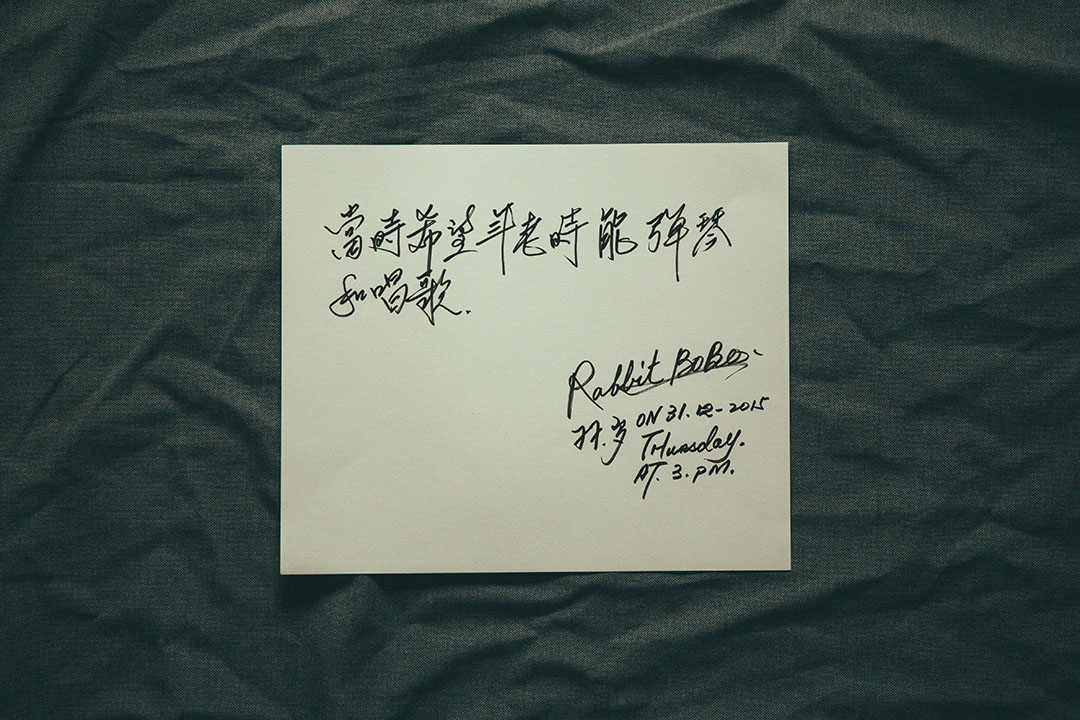 當時希望年老時能弹琴
和唱歌.
Rabbit BoBoo.
ON 31.12-2015
THURSday.
AT. 3.PM.